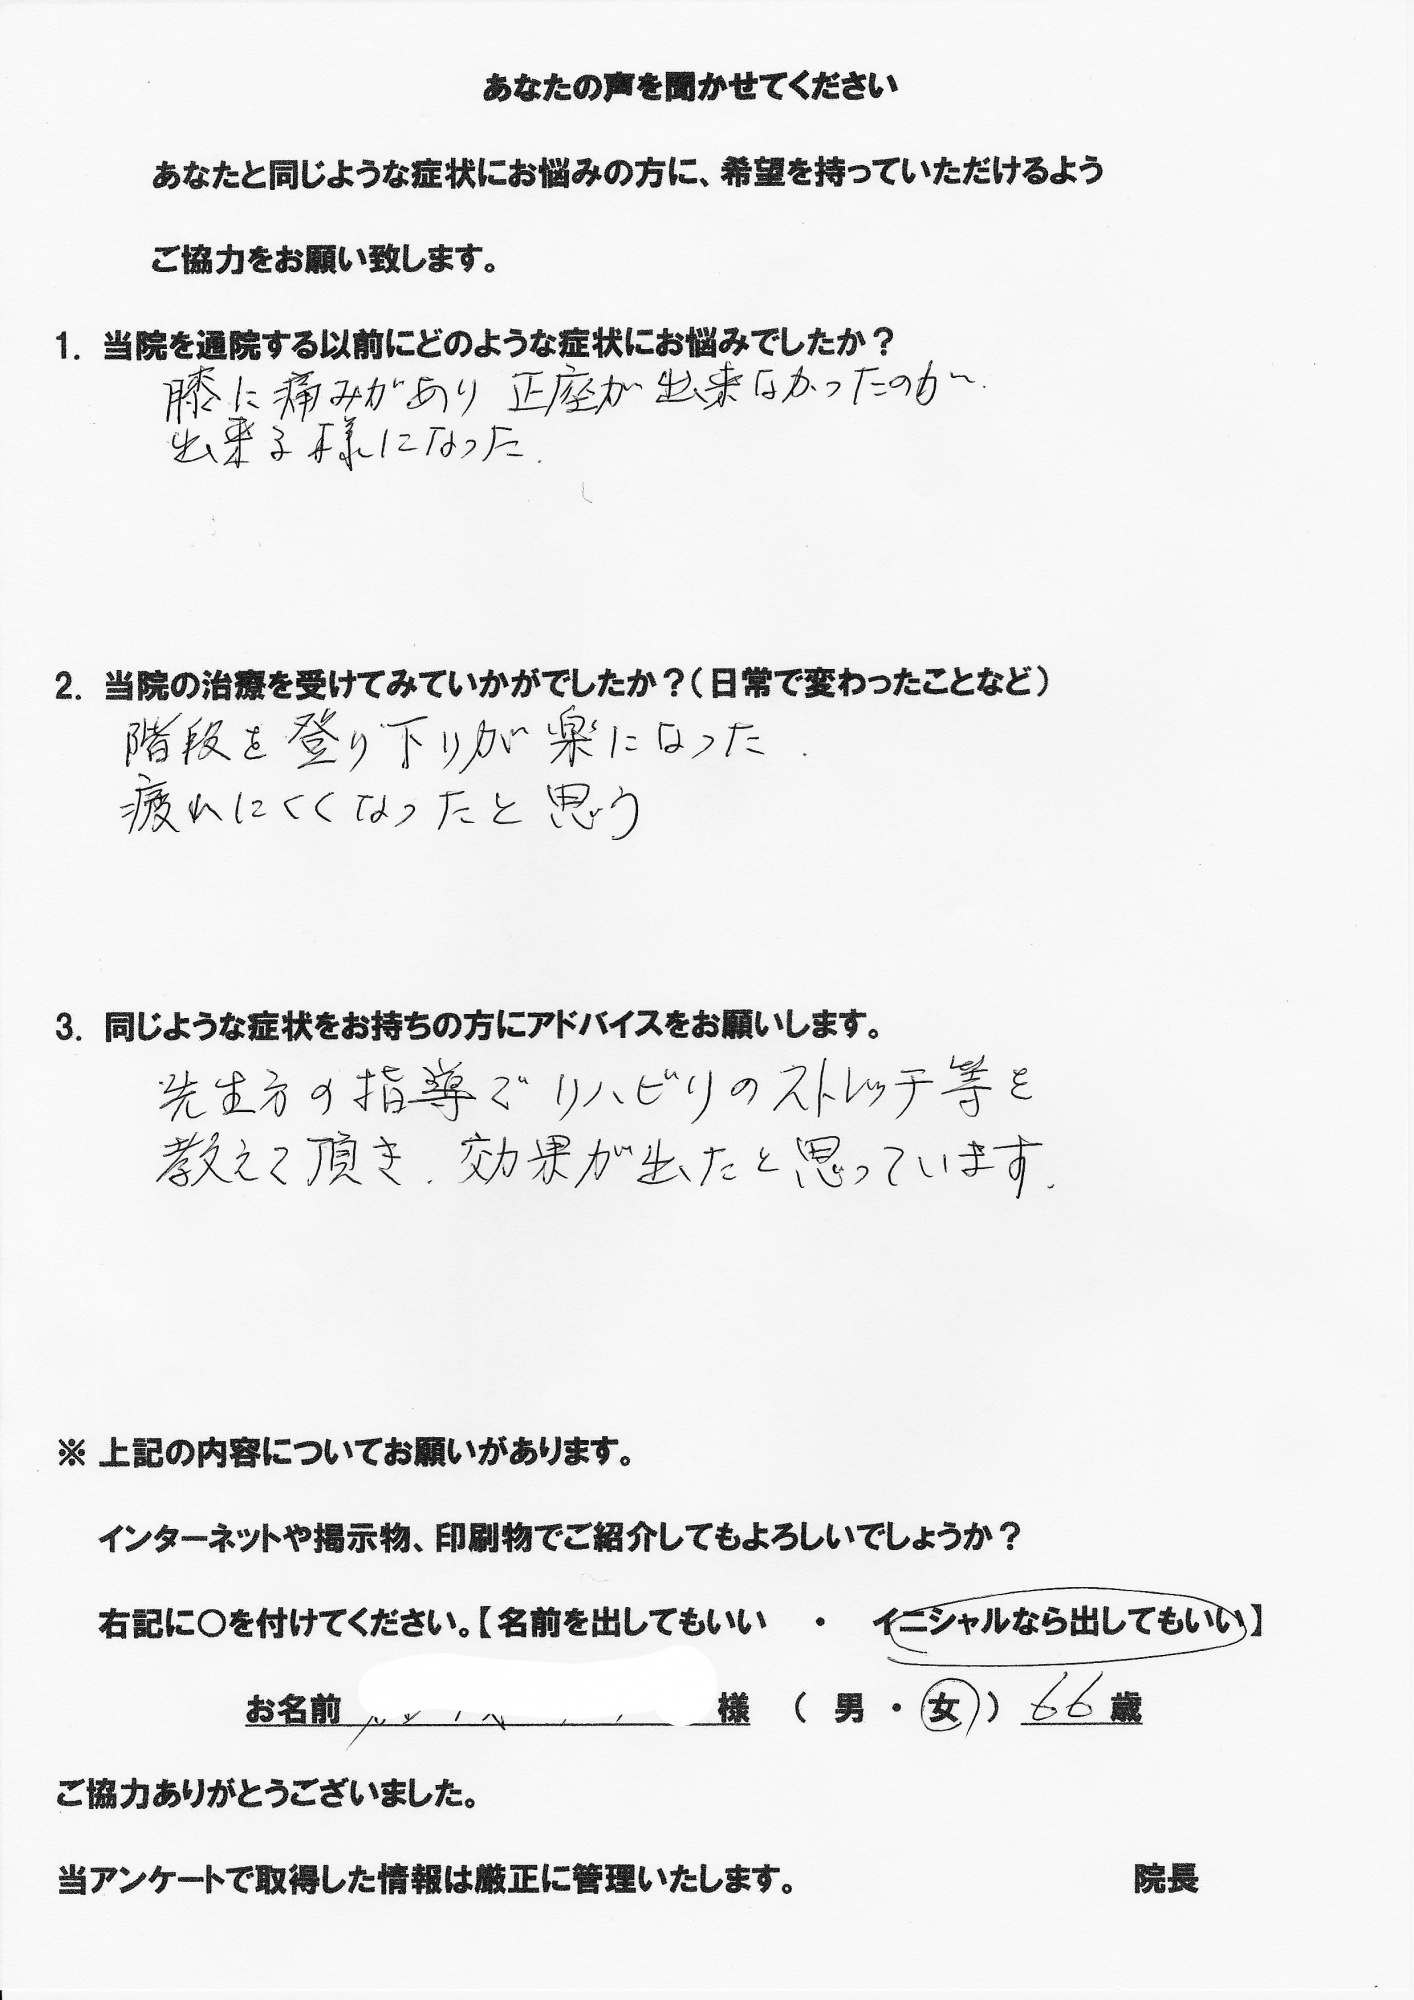 あなたの声を聞かせてください
あなたと同じような症状にお悩みの方に、希望を持っていただけるよう
ご協力をお願い致します。
1. 当院を通院する以前にどのような症状にお悩みでしたか？
膝に痛みがあり 正座が出来なかったのが
出来る様になった.
2. 当院の治療を受けてみていかがでしたか？（日常で変わったことなど）
階段を登り下りが楽になった.
疲れにくくなったと思う
3. 同じような症状をお持ちの方にアドバイスをお願いします。
先生方の指導でリハビリのストレッチ等を
教えて頂き. 効果が出たと思っています.
※ 上記の内容についてお願いがあります。
インターネットや掲示物、印刷物でご紹介してもよろしいでしょうか？
右記に○を付けてください。【 名前を出してもいい ・ イニシャルなら出してもいい 】
お名前 様 （ 男 ・ 女 ） 66 歳
ご協力ありがとうございました。
当アンケートで取得した情報は厳正に管理いたします。 院長